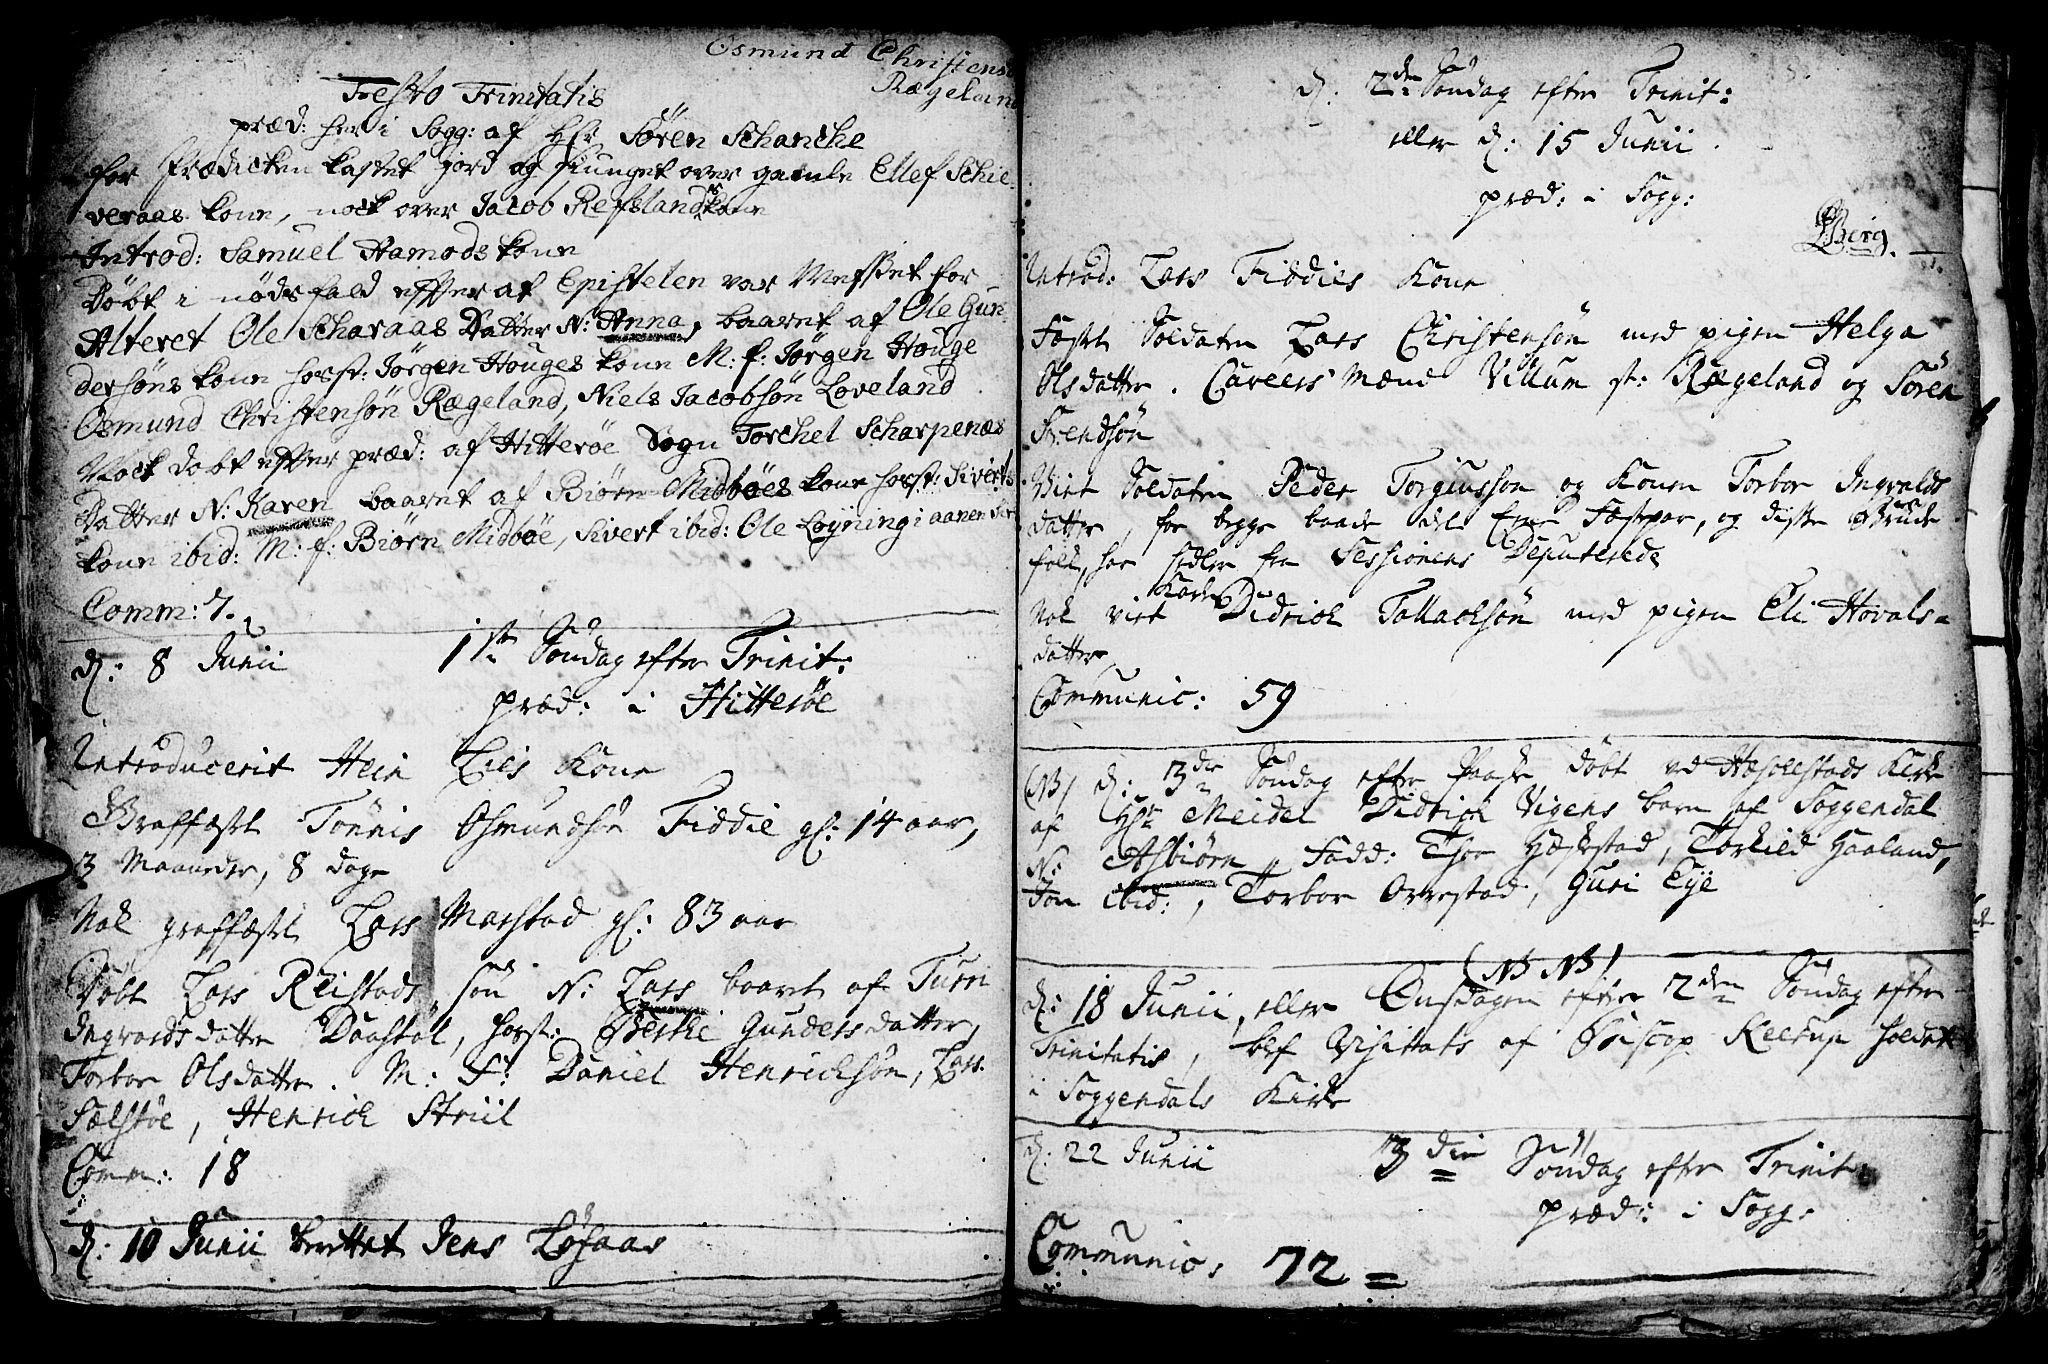 Osmund Christens
Rægeland
Festo Trinitatis
præd: her i Sogg: af Hr Sören Schanche
for Prædicken kastet jord og siunget over gamle Ellef Schie-
veraas kone, nock over Jacob Refslands kone
Introd: Samuel Hamods kone
Döbt i nödsfald efter at Epistelen var Messet for
Alteret Ole Scharaas Datter N: Anna, baaret af Ole Gun-
dersöns kone hosst: Jörgen Houges kone M: f: Jörgen Houge
Osmund Christensön Rægeland, Niels Jacobsön Loveland
Nock döbt efter præd: af Hitteröe Sogn Torchel Scharpenæs
Datter N: Karen baaret af Biörn Midböes kone hosst: Siverts
kone ibid: M: f: Biörn Midböe, Sivert ibid: Ole Löyning i aanen Sir
Comm: 7.
d: 8 Junii 1ste Söndag efter Trinit:
præd: i Hitteröe
Introducerit Hein Lies Kone
Graffæst Tönnis Osmundsön Fiddie gl: 14 aar,
3 Maaneder, 8 dage
Nok graffæst Lars Marstad gl: 83 aar
Döbt Lars Reistads sön N: Lars baaret af Turi
Ingvalds datter Daastöl, hosst: Berthe Gunders datter,
Torbor Olsdatter. M: F: Daniel Henrichsön, Lars
Sælstöe, Henrich Striil
Comm: 18
d: 10 Junii berettet Jens Löfaas
d: 2den Söndag efter Trinit:
eller d: 15 Junii.
præd: i Sogg:
Berg.
Introd: Lars Fiddies Kone
Fæst Soldaten Lars Christensön med pigen Helga
Olsdatter. Caveers Mænd Villum st: Rægeland og Sören
Svendsön
Viet Soldaten Peder Torgiusson og Konen Torbor Ingvalds
datter, for begge baade det Ene Fæstepar, og disse Brude
folk, har sedler fra Sessionens Deputerede
Nok viet Karl Didrich Tollachsön med pigen Eli Hovals-
datter
Communic: 59
(NB) d: 3die Söndag efter Paaske döbt ved Hæschestads Kirke
af Hr Meidel Didrich Vigens barn af Soggendal
N: Asbiörn, Fadd: Thor Hæskestad, Torkild Haaland,
Jon ibid:, Torbor Orrestad, Guri Eye
(NB NB)
d: 18 Junii, eller Onsdagen efter 2den Söndag efter
Trinitatis, blef Visitats af Biscop Kærup holdet
i Soggendals Kirke
d: 22 Junii 3die Söndag efter Trinit:
præd: i Sogg:
Communic: 72